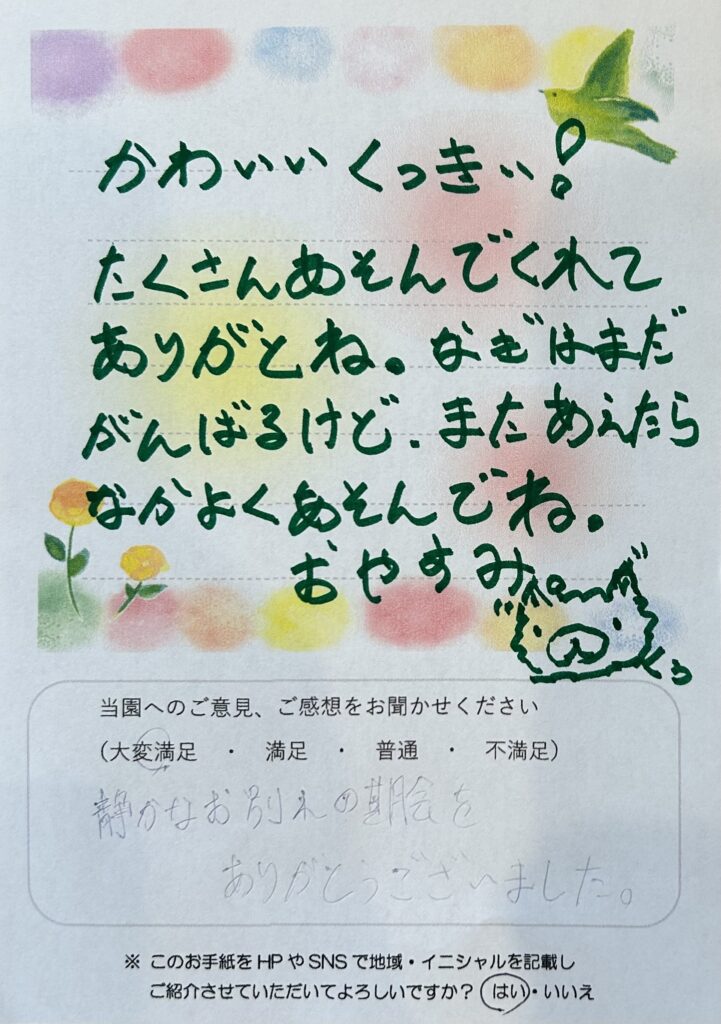 かわいいくっきぃ!
たくさんあそんでくれて
ありがとね。なぎはまだ
がんばるけど、またあえたら
なかよくあそんでね。
おやすみ
当園へのご意見、ご感想をお聞かせください
(大変満足 ・ 満足 ・ 普通 ・ 不満足)
静かなお別れの期会を
ありがとうございました。
※ このお手紙をHPやSNSで地域・イニシャルを記載し
ご紹介させていただいてよろしいですか? はい・いいえ